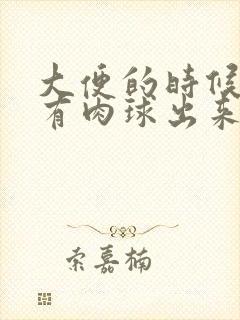 大便的時候
有肉球出来
索嘉楠